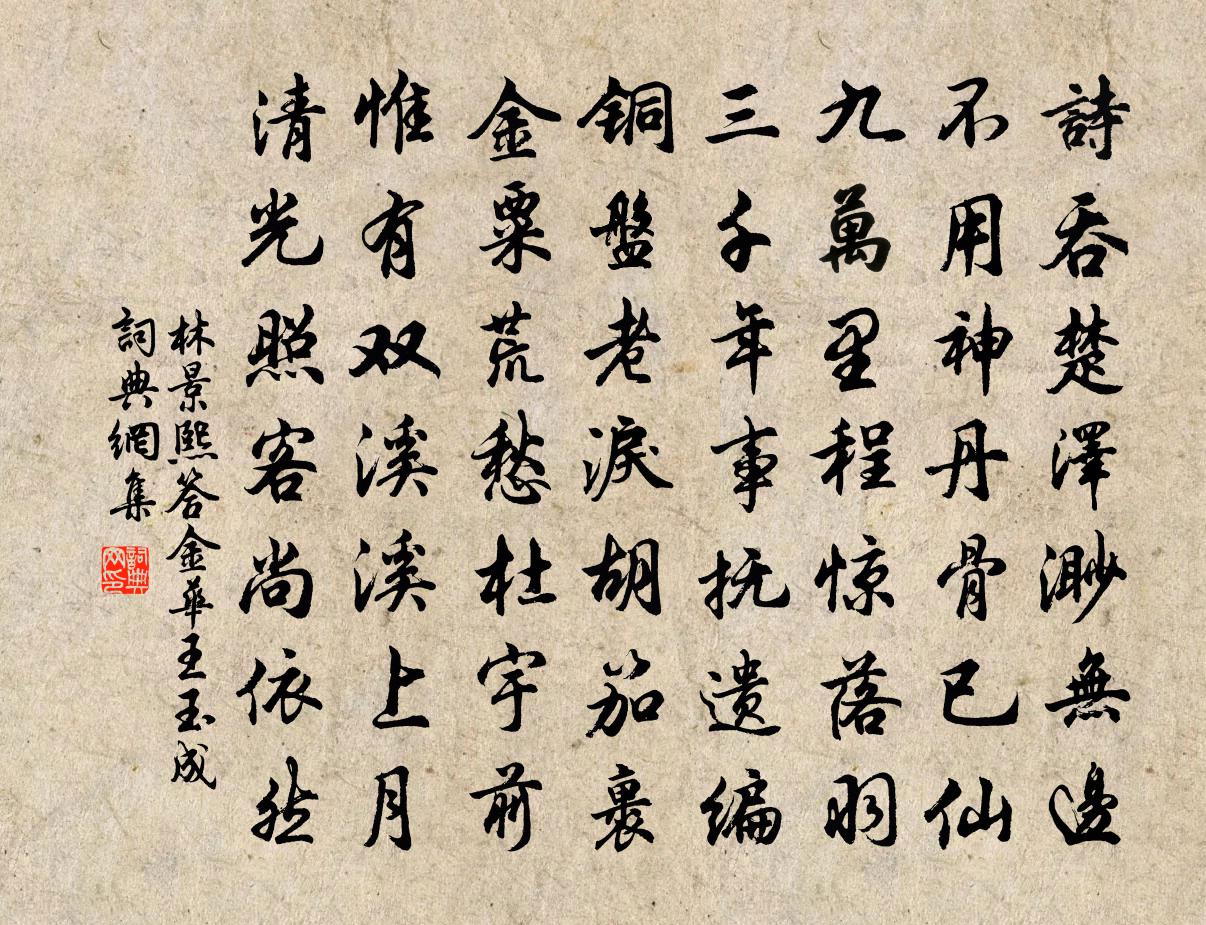 詩吞楚澤渺無邊
不用神丹骨已仙
九萬里程惊落羽
三千年事抚遺编
銅盤老淚胡笳裏
金粟荒愁杜宇前
惟有双溪溪上月
清光照客尚依然
林景熙答金華王玉成
詞典網集
詞典网印